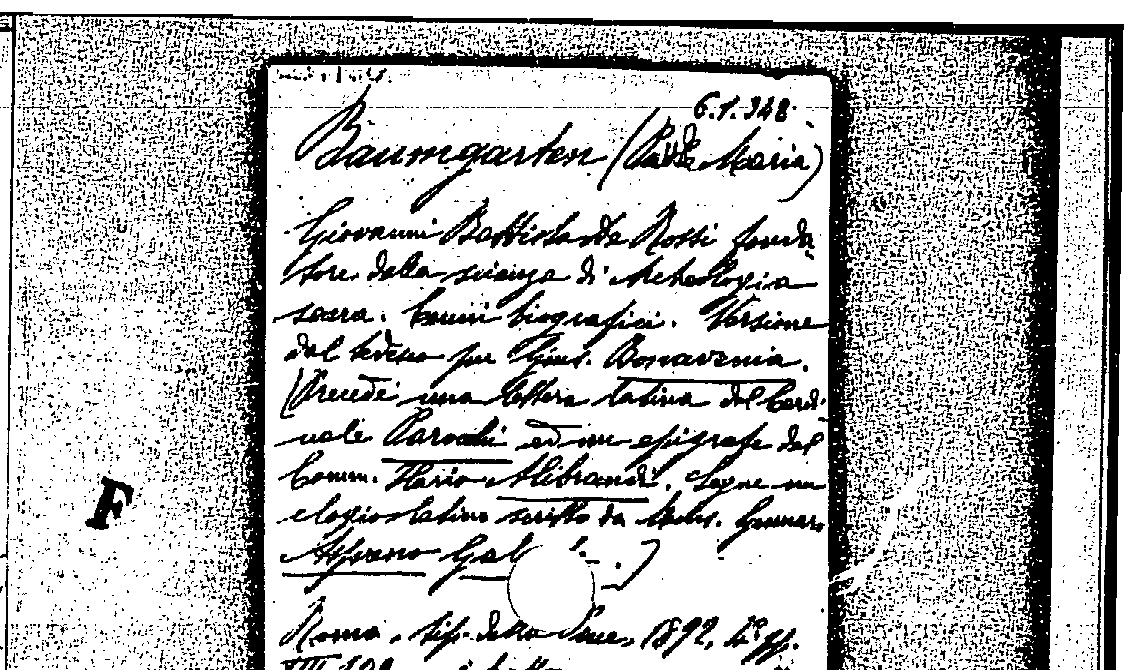 6.1.348.
Baumgarten (Paolo Maria)
Giovanni Battista de Rossi fonda
tore della scienza di Archeologia
sacra. Cenni biografici. Versione
dal tedesco per Gius. Bonavenia.
(Precede una lettera latina del Cardi-
nale Parocchi ed un epigrafe del
Comm. Ilario Alibrandi. Segue un
elogio latino scritto da Mons. Gennaro
Aspreno Gal
Roma, tip. della Pace, 1892, 4° pp.
F